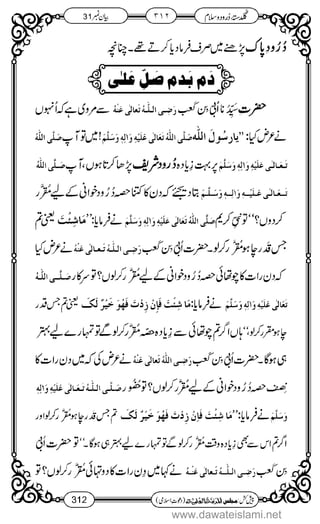 گلدستۂ درود و سلام ۳۱۲ بیان نمبر 31
دُرُودِ پاک پڑھنے میں صرف فرمایا کرتے تھے۔ چنانچہ
دَم بدم صَلِّ عَلٰی
حضرت سیّدنا اُبَی بن کعب رَضِیَ اللّٰہُ تَعَالٰی عَنْہُ سے مروی ہے کہ اُنہوں
نے عرض کیا: ’’یارسُولَ اللّٰہ صَلَّی اللّٰہُ تَعَالٰی عَلَیْہِ وَاٰلِہٖ وَسَلَّمَ! میں تو آپ صَلَّی اللّٰہُ
تَعَالٰی عَلَیْہِ وَاٰلِہٖ وَسَلَّمَ پر بہت زیادہ دُرُود شریف پڑھا کرتا ہوں، آپ صَلَّی اللّٰہُ
تَعَالٰی عَلَیْہِ وَاٰلِہٖ وَسَلَّمَ بتا دیجئے کہ دن کا کتنا حصہ دُرُود خوانی کے لیے مُقَرَّر
کردوں؟‘‘ تو نبی کریم صَلَّی اللّٰہُ تَعَالٰی عَلَیْہِ وَاٰلِہٖ وَسَلَّمَ نے فرمایا: ’’مَاشِئْتَ یعنی تم
جس قدر چاہو مُقَرَّر کرلو۔ حضرت اُبَی بن کعب رَضِیَ اللّٰہُ تَعَالٰی عَنْہُ نے عرض کیا
کہ دن رات کا چوتھائی حصہ دُرُود خوانی کے لیے مُقَرَّر کرلوں؟ تو سرکار صَلَّی اللّٰہُ
تَعَالٰی عَلَیْہِ وَاٰلِہٖ وَسَلَّمَ نے فرمایا: مَا شِئْتَ فَاِنْ زِدْتَ فَھُوَ خَیْرٌ لَّکَ تم جس قدر
چاہو مقرر کرلو، ہاں اگر تم چوتھائی سے زیادہ حصّہ مُقَرَّر کرلو گے تو تمہارے لیے بہتر
ہی ہوگا۔ حضرت اُبَی بن کعب رَضِیَ اللّٰہُ تَعَالٰی عَنْہُ نے عرض کی کہ میں دن رات کا
نِصف حصہ دُرُود خوانی کے لیے مُقَرَّر کرلوں؟ تو حضُور صَلَّی اللّٰہُ تَعَالٰی عَلَیْہِ وَاٰلِہٖ
وَسَلَّمَ نے فرمایا: ’’مَا شِئْتَ فَاِنْ زِدْتَ فَھُوَ خَیْرٌ لَّکَ تم جس قدر چاہو مُقَرَّر کرلو اور
اگر تم اس سے بھی زیادہ وقت مُقَرَّر کرلو گے تو تمہارے لیے بہتر ہی ہوگا۔‘‘ تو حضرت اُبَی
بن کعب رَضِیَ اللّٰہُ تَعَالٰی عَنْہُ نے کہا میں دن رات کا دو تہائی مُقَرَّر کرلوں؟ تو
312 (دعوتِ اسلامی)
www.dawateislami.net